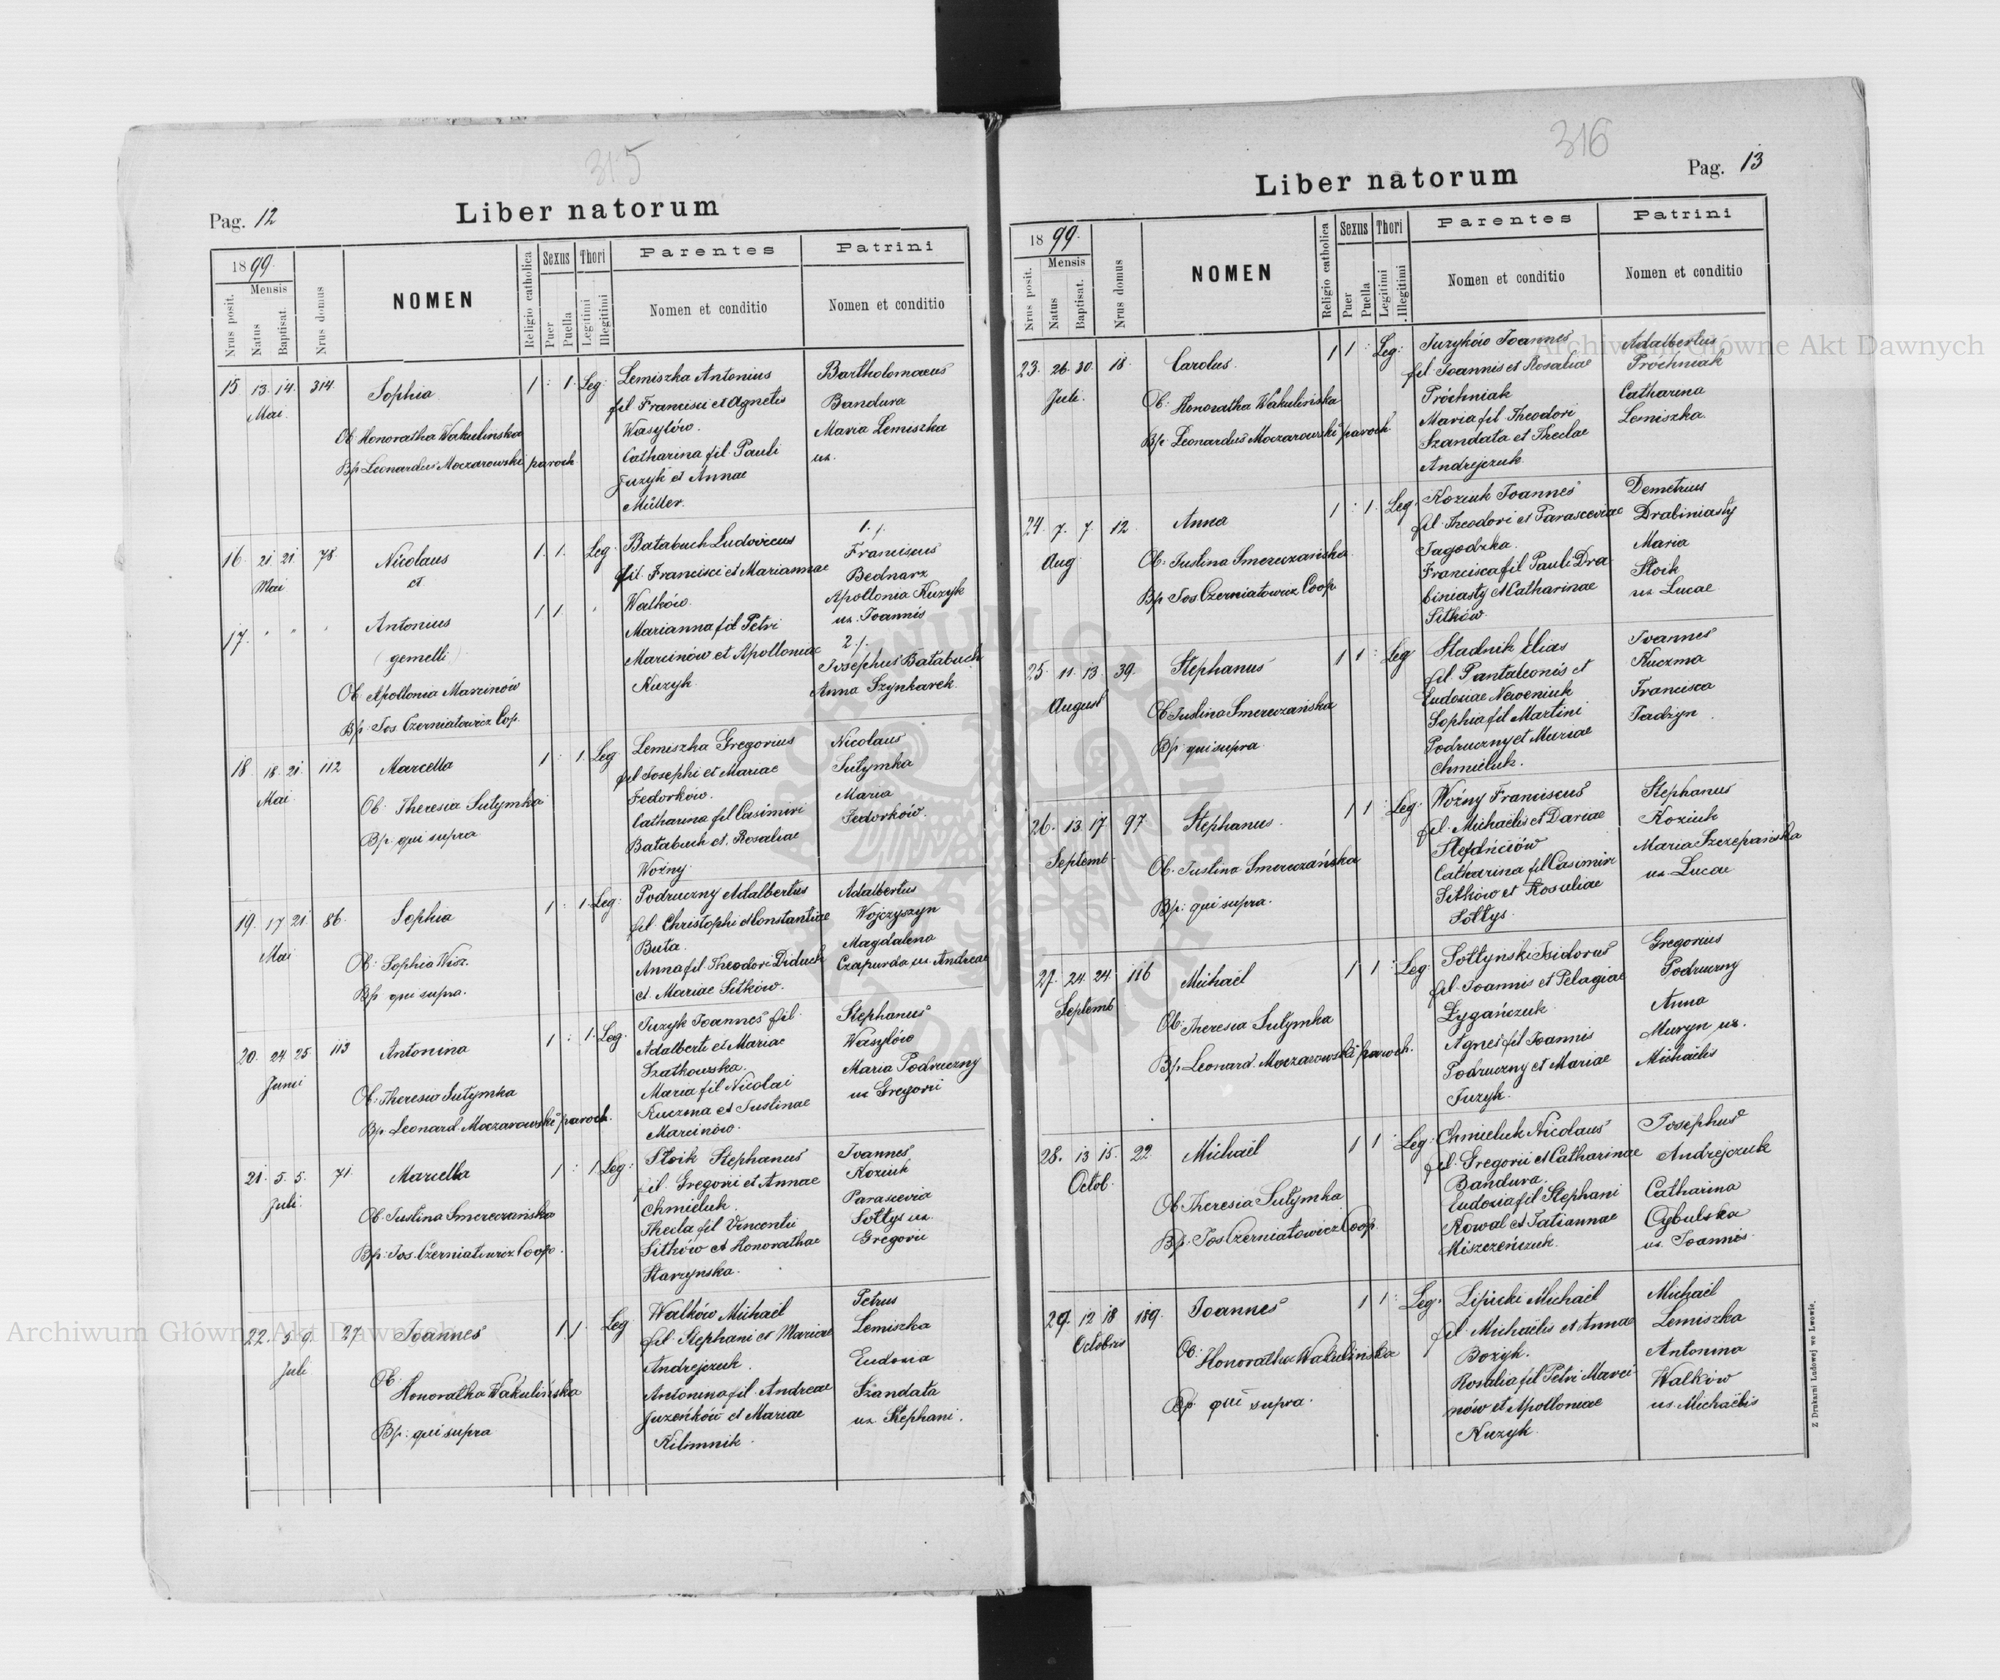 315
Pag. 12
Liber natorum
1899.
Mensis
Nrus posit.
Natus
Baptisat.
Nrus domus
NOMEN
Religio catholica
Sexus
Puer
Puella
Thori
Legitimi
Illegitimi
Parentes
Nomen et conditio
Patrini
Nomen et conditio
15 13. 14. 314. Sophia 1 : 1. Leg:
Mai.
Ob. Honoratha Wakulińska
Bp Leonardus Moczarowski paroch
Lemiszka Antonius
fil Francisci et Agnetis
Wasylów.
Catharina fil. Pauli
Juzyk et Annae
Müller.
Bartholomaeus
Bandura
Maria Lemiszka
ux.
16. 21. 21. 78. Nicolaus 1. 1. Leg:
Mai et
17. " " " Antonius 1 1. "
(gemelli)
Ob. Apollonia Marcinów
Bp. Jos Czerniatowicz Cop.
Batabuch Ludovicus
fil. Francisci et Mariannae
Walków.
Marianna fil Petri
Marcinów et Apolloniae
Kuzyk.
1. /.
Franciscus
Bednarz
Apollonia Kuzyk
ux. Joannis
2 /.
Josephus Batabuch
Anna Szynkarek.
18. 18. 21. 112 Marcella 1 : 1 Leg:
Mai.
Ob: Theresia Sutymka
Bp. qui supra
Lemiszka Gregorius
fil Josephi et Mariae
Fedorków.
Catharina fil Casimiri
Batabuch et. Rosaliae
Woźny
Nicolaus
Sutymka
Maria
Fedorków.
19. 17 21 86. Sophia 1 : 1. Leg:
Mai
Ob: Sophia Wisz.
Bp qui supra.
Podruczny Adalbertus
fil. Christophi et Constantiae
Buta.
Anna fil Theodori Diduch
et. Mariae Sitków.
Adalbertus
Wojczyszyn
Magdalena
Czapurda ux Andreae
20. 24 25 113 Antonina 1 : 1. Leg:
Junii
Ob: Theresia Sutymka
Bp. Leonard. Moczarowski paroch.
Juzyk Joannes fil.
Adalberti et Mariae
Szatkowska.
Maria fil Nicolai
Kuczma et Justinae
Marcinów.
Stephanus
Wasylów
Maria Podruczny
ux Gregorii
21. 5. 5. 71. Marcella 1 : 1. Leg:
Juli.
Ob. Justina Smereczańska
Bp. Jos. Czerniatowicz Coop.
Stoik Stephanus
fil. Gregorii et Annae
Chmieluk.
Thecla fil Vincentii
Sitków et Honorathae
Starzynska.
Joannes
Koziuk
Parascevia
Sołtys ux.
Gregorii
22. 5. 9. 27. Joannes 1. 1. Leg
Juli
Ob.
Honoratha Wakulińska
Bp: qui supra
Walków Michaël
fil. Stephani et Mariae
Andrejczuk.
Antonina fil. Andreae
Juzeńków et Mariae
Kilimnik.
Petrus
Lemiszka
Eudoxia
Szandata
ux Stephani.
316
Pag. 13
Liber natorum
1899.
Mensis
Nrus posit.
Natus
Baptisat.
Nrus domus
NOMEN
Religio catholica
Sexus
Puer
Puella
Thori
Legitimi
Illegitimi
Parentes
Nomen et conditio
Patrini
Nomen et conditio
23. 26. 30. 18. Carolus. 1 1 : Leg:
Juli.
Ob: Honoratha Wakulińska
Bp. Leonardus Moczarowski paroch.
Juzyków Joannes
fil. Joannis et Rosaliae
Próchniak
Maria fil Theodori
Szandata et Theclae
Andrejczuk.
Adalbertus
Próchniak
Catharina
Lemiszka.
24. 7. 7. 12. Anna 1 : 1. Leg:
Aug
Ob: Justina Smereczańska
Bp Jos Czerniatowicz Coop
Koziuk Joannes
fil. Theodori et Parasceviae
Jagodzka.
Francisca fil Pauli Dra
biniasty et Catharinae
Sitków.
Demetrius
Drabiniasty
Maria
Stoik
ux Lucae
25. 11. 13. 39. Stephanus 1 1 : Leg
August
Ob Justina Smereczańska
Bp: qui supra.
Stadnik Elias
fil. Pantaleonis et
Eudoxiae Neweniuk
Sophia fil Martini
Podruczny et Mariae
Chmieluk.
Joannes
Kuczma
Francisca
Tadzyn.
26. 13. 17. 97 Stephanus. 1 1 : Leg:
Septemb
Ob. Justina Smereczańska
Bp: qui supra.
Woźny Franciscus
fil. Michaëlis et Dariae
Stefańciów
Catharina fil Casimiri
Sitków et Rosaliae
Sołtys.
Stephanus
Koziuk
Maria Szczepańska
ux Lucae
27. 24. 24 116 Michaël 1 1 : Leg:
Septemb
Ob: Theresia Sutymka
Bp Leonard. Moczarowski paroch.
Sołtyński Isidorus
fil. Joannis et Pelagiae
Łygańczuk
Agnes fil Joannis
Podruczny et Mariae
Juzyk.
Gregorius
Podruczny
Anna
Muryn ux.
Michaëlis
28. 13 15. 22. Michaël 1 1 : Leg:
Octob.
Ob. Theresia Sutymka
Bp. Jos Czerniatowicz Coop.
Chmieluk Nicolaus
fil. Gregorii et Catharinae
Bandura.
Eudoxia fil Stephani
Kowal et Tatiannae
Miszczeńczuk.
Josephus
Andrejczuk
Catharina
Cybulska
ux. Joannis.
29. 12 18 189. Joannes 1 1. : Leg:
Octobris
Ob: Honoratha Wakulińska
Bp. qui supra.
Lipicki Michaël
fil. Michaëlis et Annae
Bożyk.
Rosalia fil Petri Marci
nów et Apolloniae
Kuzyk.
Michaël
Lemiszka
Antonina
Walków
ux. Michaëlis
Z Drukarni Ludowej we Lwowie.
Archiwum Główne Akt Dawnych
Archiwum Główne Akt Dawnych
ARCHIWUM GŁÓWNE AKT DAWNYCH